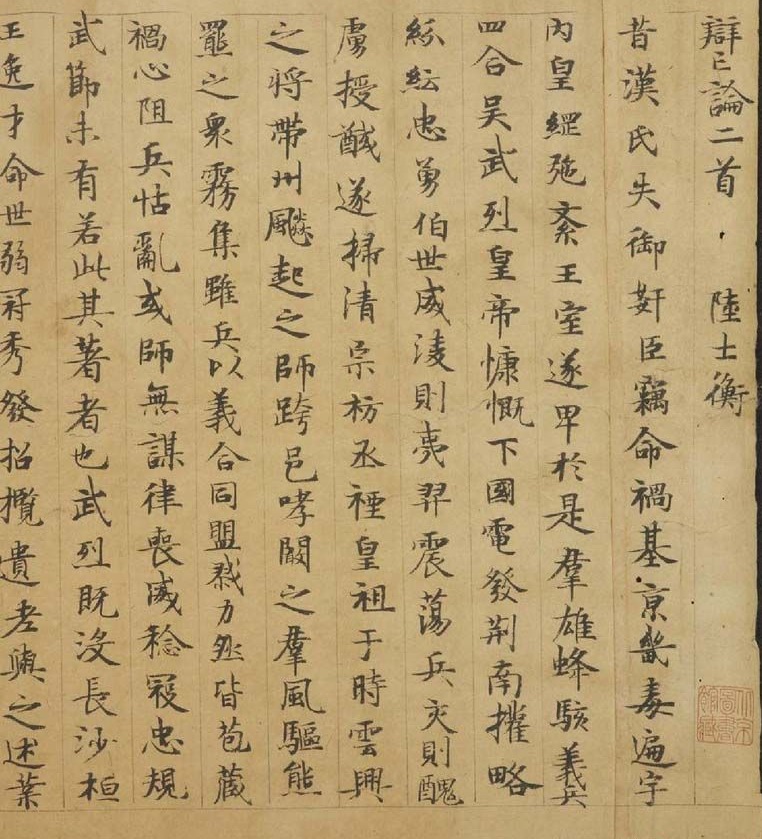 辯亡論二首 陸士衡
昔漢氏失御奸臣竊命禍基京畿毒遍宇
內皇綱弛紊王室遂卑於是羣雄蜂駭義兵
四合吳武烈皇帝慷慨下國電發荊南擢略
紛紜忠勇伯世威淩則夷羿震蕩兵交則醜
虜授馘遂掃清宗枋丞禋皇祖于時雲興
之將帶州飈起之師跨邑哮闞之羣風驅熊
羆之衆霧集雖兵以義合同盟勠力然皆苞藏
禍心阻兵怙亂或師無謀律喪威稔寇忠規
武節未有若此其著者也武烈既沒長沙桓
王逸才命世弱冠秀發招攬遺老與之述業